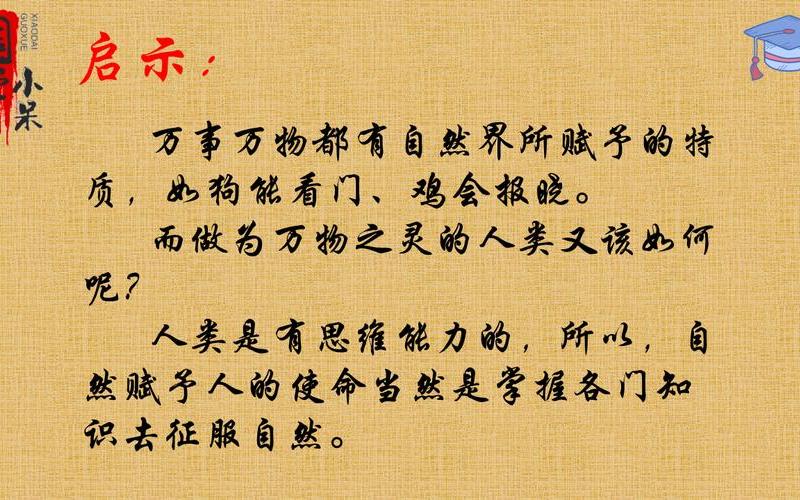 XIAODAI
GUOXUE
国学
小呆
启示：
万事万物都有自然界所赋予的特
质，如狗能看门、鸡会报晓。
而做为万物之灵的人类又该如何
呢？
人类是有思维能力的，所以，自
然赋予人的使命当然是掌握各门知
识去征服自然。